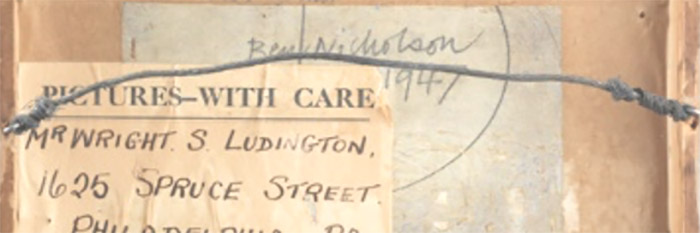 Ben Nicholson
1947
PICTURES–WITH CARE
MR WRIGHT. S. LUDINGTON,
1625 SPRUCE STREET.
PHILADELPHIA PA